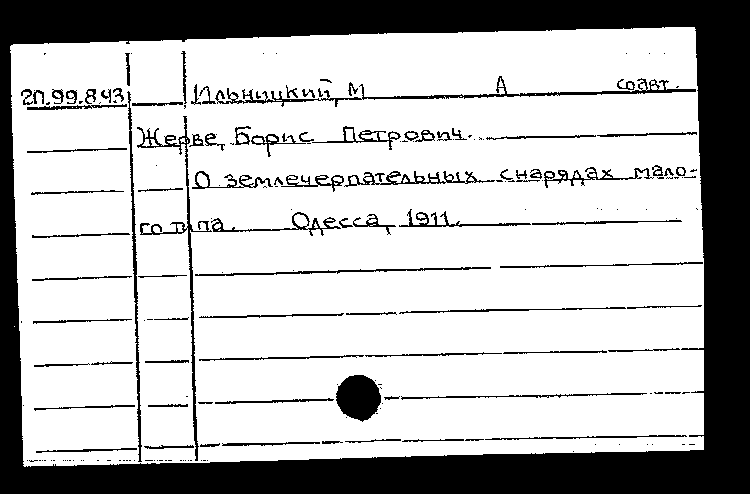 20.99.8.43 Ильницкий, М А соавт.
Жерве, Борис Петрович.
О землечерпательных снарядах мало-
го типа. Одесса, 1911.